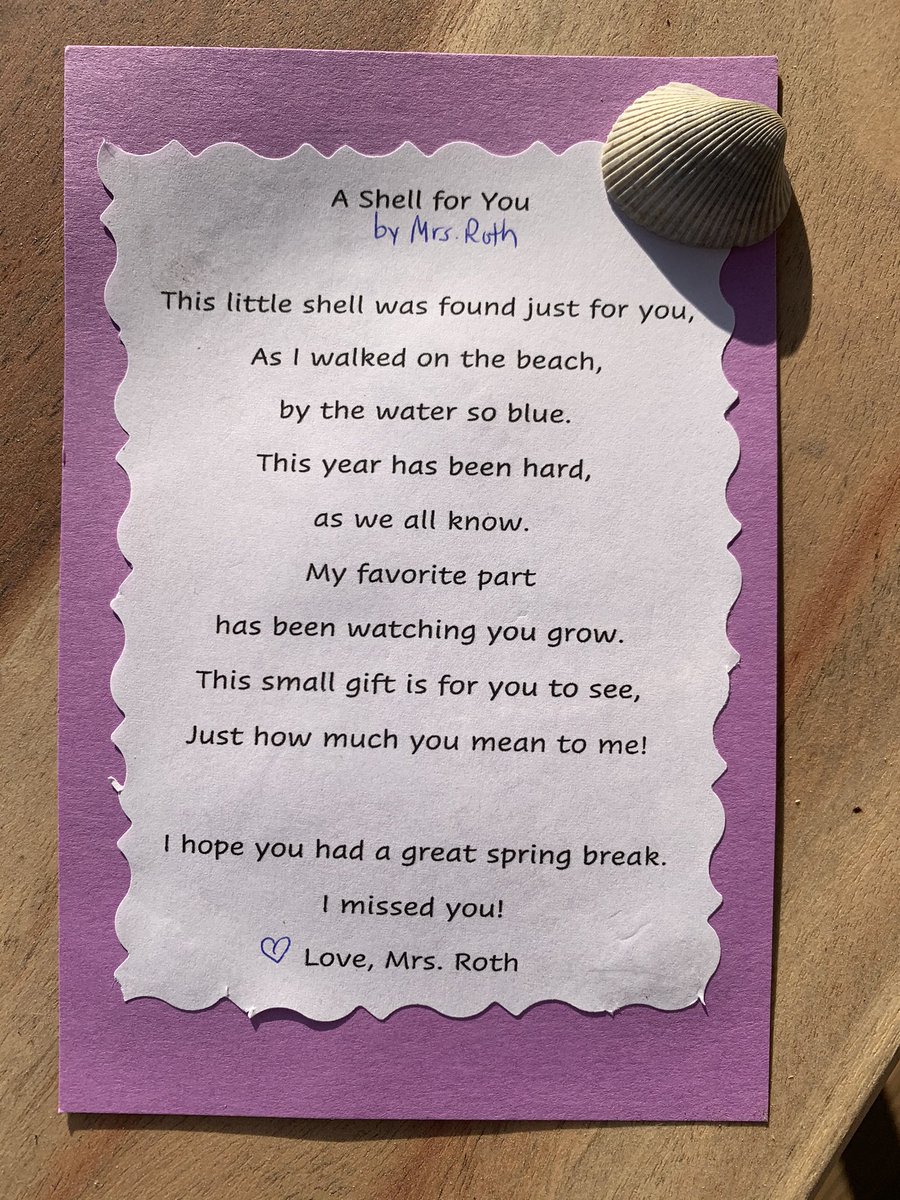 A Shell for You
by Mrs. Roth
This little shell was found just for you,
As I walked on the beach,
by the water so blue.
This year has been hard,
as we all know.
My favorite part
has been watching you grow.
This small gift is for you to see,
Just how much you mean to me!
I hope you had a great spring break.
I missed you!
Love, Mrs. Roth